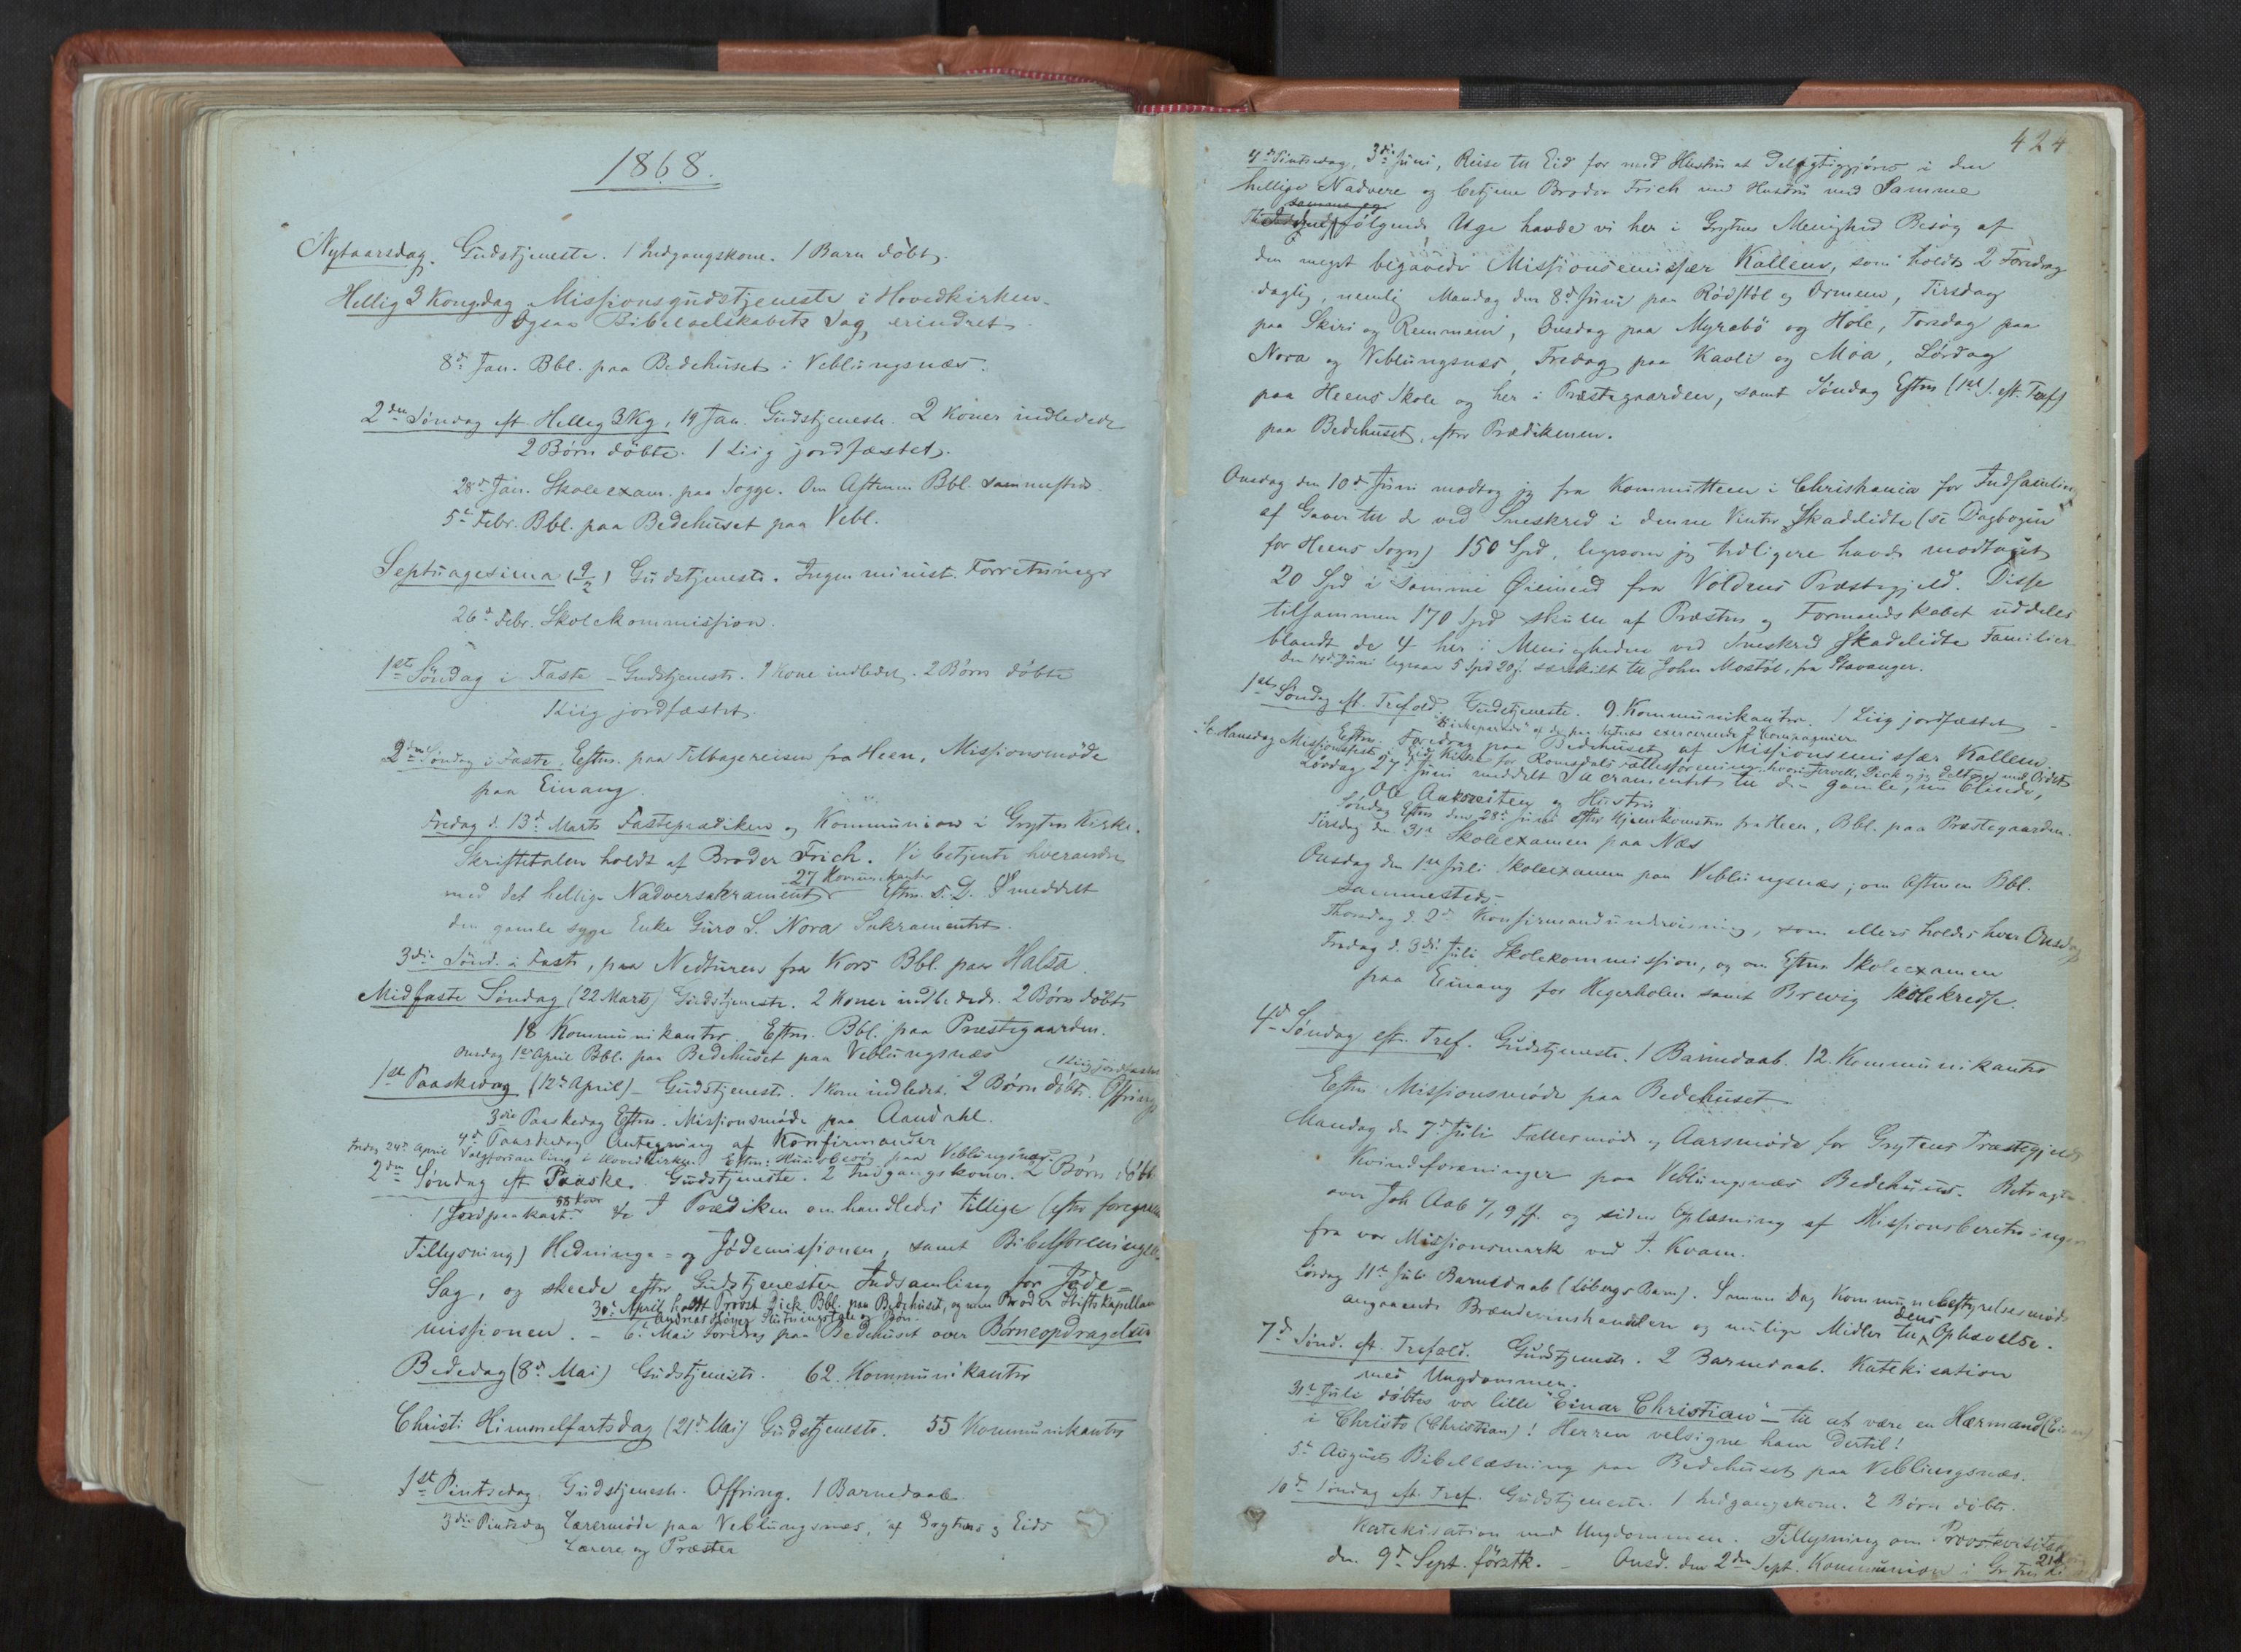 1868.
Nytaarsdag. Gudstjeneste. 1 Indgangskone. 1 Barn döbt.
Hellig 3 Kongdag Missionsgudstjeneste i Hovedkirken.
Ogsaa Bibelselskabets Sag erindret.
8d Jan. Bbl. paa Bedehuset i Veblungsnæs.
2den Söndag eft. Hellig 3 Kg, 19 Jan. Gudstjeneste. 2 Koner indledede
2 Börn döbte. 1 Liig jordfæstet.
28d Jan. Skoleexam. paa Sogge. Om Aftenen Bbl. sammesteds
5t Febr. Bbl. paa Bedehuset paa Vebl.
Septuagesima (9/2) Gudstjeneste. Ingen minist. Forretninger
26d Febr. Skolekommission.
1ste Söndag i Faste - Gudstjeneste. 1 Kone indledet. 2 Börn döbte
1 Liig jordfæstet.
2den Söndag i Faste, Eftm. paa Tilbagereisen fra Heen, Missionsmöde
paa Einang.
Fredag d. 13d Marts Fasteprædiken og Kommunion i Grytens Kirke.
Skriftetalen holdt af Broder Frich. Vi betjente hverandre
27 Kommunikanter
med det hellige Nadversakrament Eftm. s. D. meddelt
den gamle syge Enke Guro S. Nora Sakramentet.
3die Sönd. i Faste, paa Nedturen fra Kors Bbl. paa Halsa
Midfaste Söndag (22 Marts) Gudstjeneste. 2 Koner indledede. 2 Börn döbte
18 Kommunikanter. Eftm. Bbl. paa Præstegaarden.
Onsdag 1ste April Bbl. paa Bedehuset paa Veblungsnæs
1 Liig jordfæstet
1ste Paaskedag (12d April) - Gudstjeneste. 1 Kone indledet. 2 Börn döbte. Offring
3die Paaskedag Eftm. Missionsmöde paa Aandahl.
4d Paaskedag Antegning af Konfirmander
Fredag 24d April Valgforsamling i Hovedkirken. Eftm: Huusbesög paa Veblungsnæs.
2den Söndag eft. Paaske. Gudstjeneste. 2 Indgangskoner. 2 Börn döbt
1 Jordpaakast. I Prædiken omhandledes tillige (efter foregaaende
Tillysning) Hedninge- og Jödemissionen, samt Bibelforeningens
Sag, og skeede efter Gudstjenesten Indsamling for Jöde-
30d April holdt Provst Dick Bbl. paa Bedehuset, og min Broder Stiftskapellan
Andreas Slutningstale og Bön.
missionen. - 6t Mai Foredrag paa Bedehuset over Börneopdragelsen
Bededag (8d Mai) Gudstjeneste. 62 Kommunikanter
Christi Himmelfartsdag (21d Mai) Gudstjeneste. 55 Kommunikanter
1ste Pintsedag Gudstjeneste. Offring. 1 Barnedaab
3die Pintsedag Lærermöde paa Veblungsnæs, af Grytens og Eids
Lærere og Præster
424
4d Pintsedag, 3die Juni, Reise til Eid for med Hustru at delagtiggjöres i den
hellige Nadvere og betjene Broder Frich med Hustru med Samme
samme og
fölgende Uge havde vi her i Grytens Menighed Besög af
den meget begavede Missionsemissær Kallem, som holdt 2 Foredrag
daglig, nemlig Mandag den 8d Juni paa Rödstöl og Ormem, Tirsdag
paa Skiri og Remmem, Onsdag paa Myrebö og Hole, Torsdag paa
Nora og Veblungsnæs, Fredag paa Kavli og Moa, Lördag
paa Heens Skole og her i Præstegaarden, samt Söndag Eftm (1ste S. eft. Tref)
paa Bedehuset, efter Prædikenen.
Onsdag den 10d Juni modtog jeg fra Kommitteen i Christiania for Indsamling
af Gaver til de ved Sneskred i denne Vinter Skadelidte (se Dagbogen
for Heens Sogn) 150 Spd, ligesom jeg tidligere havde modtaget
20 Spd i samme Öiemed fra Voldens Præstegjeld. Disse
tilsammen 170 Spd skulle af Præsten og Formandskabet uddeles
blandt de 4 her i Menigheden ved Sneskred Skadelidte Familier
Den 14d Juni ligesaa 5 Spd 20 s. særskilt til John Mostöl, fra Stavanger.
1ste Söndag eft. Trefold. Gudstjeneste. 9 Kommunikanter. 1 Liig jordfæstet
"Kirkeparade" af de paa Setnæs exercerende 2 Kompagnier.
Eftm. Foredrag paa Bedehuset af Missionsemissær Kallem.
St. Hansdag Missionsfest i Eids Kirke for Romsdals Fællesforening, hvori Jervell, Dick og jeg deltoge med Ordet.
Lördag 27d Juni meddelt Sacramentet til den gamle, nu blinde,
Ole Aakseiten og Hustru
Söndag Eftm den 28d Juni efter Hjemkomsten fra Heen, Bbl. paa Præstegaarden.
Tirsdag den 31d Skoleexamen paa Næs
Onsdag den 1ste Juli Skoleexamen paa Veblungsnæs; om Aftenen Bbl.
sammesteds.
Thorsdag d. 2d Konfirmandundervisning, som ellers holdes hver Onsdag
Fredag d. 3die Juli Skolekommission, og om Eftm Skoleexamen
paa Einang for Hegerholm samt Brevig Skolekredse.
4d Söndag eft. Tref. Gudstjeneste. 1 Barnedaab. 12 Kommunikanter
Eftm Missionsmöde paa Bedehuset.
Mandag den 7d Juli Fællesmöde og Aarsmöde for Grytens Præstegjelds
Kvindeforeninger paa Veblungsnæs Bedehuus. Betragtn.
over Joh Aab 7, 9 ff. og siden Oplæsning af Missionsberetninger
fra vor Missionsmark ved J. Kvam.
Lördag 11d Juli Barnedaab (Löbergs Barn). Samme Dag Kommunebestyrelsesmöde
angaaende Brændevinshandelen og mulige Midler til dens Ophævelse.
7d Sönd. eft. Trefold. Gudstjeneste. 2 Barnedaab. Katekisation
med Ungdommen.
31d Juli döbtes vor lille "Einar Christian" - til at være en Hærmand (Einar)
i Christo (Christian)! Herren velsigne ham dertil!
5t Augusts Bibellæsning paa Bedehuset paa Veblungsnæs.
10d Söndag eft. Tref. Gudstjeneste. 1 Indgangskone. 2 Börn döbte.
Katekisation med Ungdommen. Tillysning om Provstevisitats
den 9d Sept. förstk. - Onsd. den 2den Sept. Kommunion i
21d